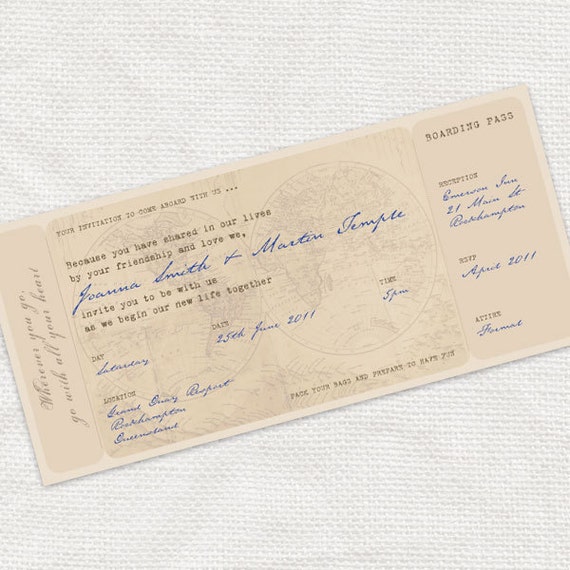 Wherever you go,
go with all your heart
YOUR INVITATION TO COME ABOARD WITH US ...
Because you have shared in our lives
by your friendship and love we,
Joanna Smith & Martin Temple
invite you to be with us
as we begin our new life together
DAY
Saturday
DATE
25th June 2011
TIME
5pm
LOCATION
Grand Quay Resport
Rockhampton
Queensland
PACK YOUR BAGS AND PREPARE TO HAVE FUN
BOARDING PASS
RECEPTION
Emerson Inn
21 Main St
Rockhampton
RSVP
April 2011
ATTIRE
Formal